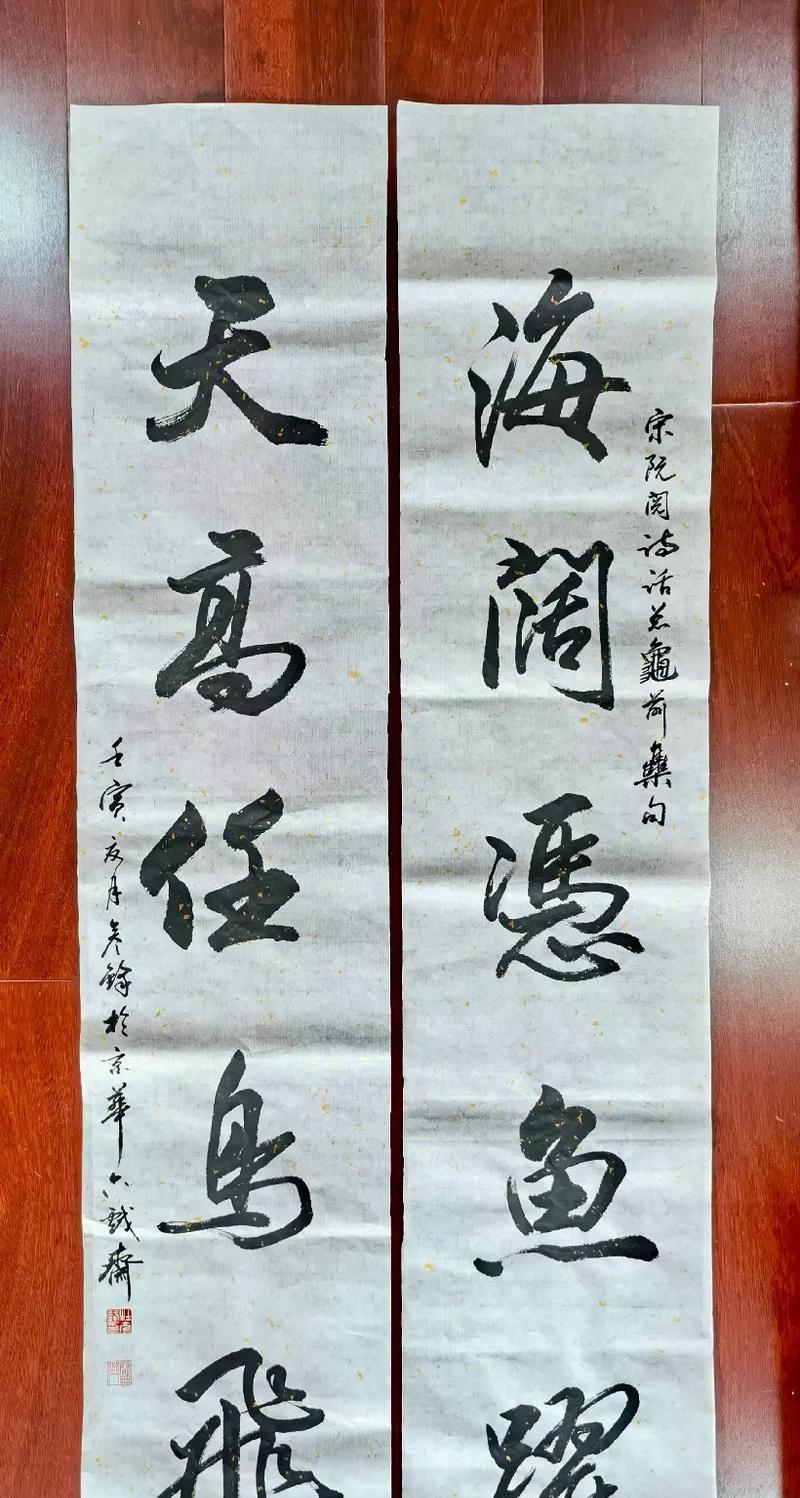 海闊憑魚躍
宋阮閱詩話总龜前集句
天高任鳥飛
壬寅夏月彥鋒於京華六戲齋